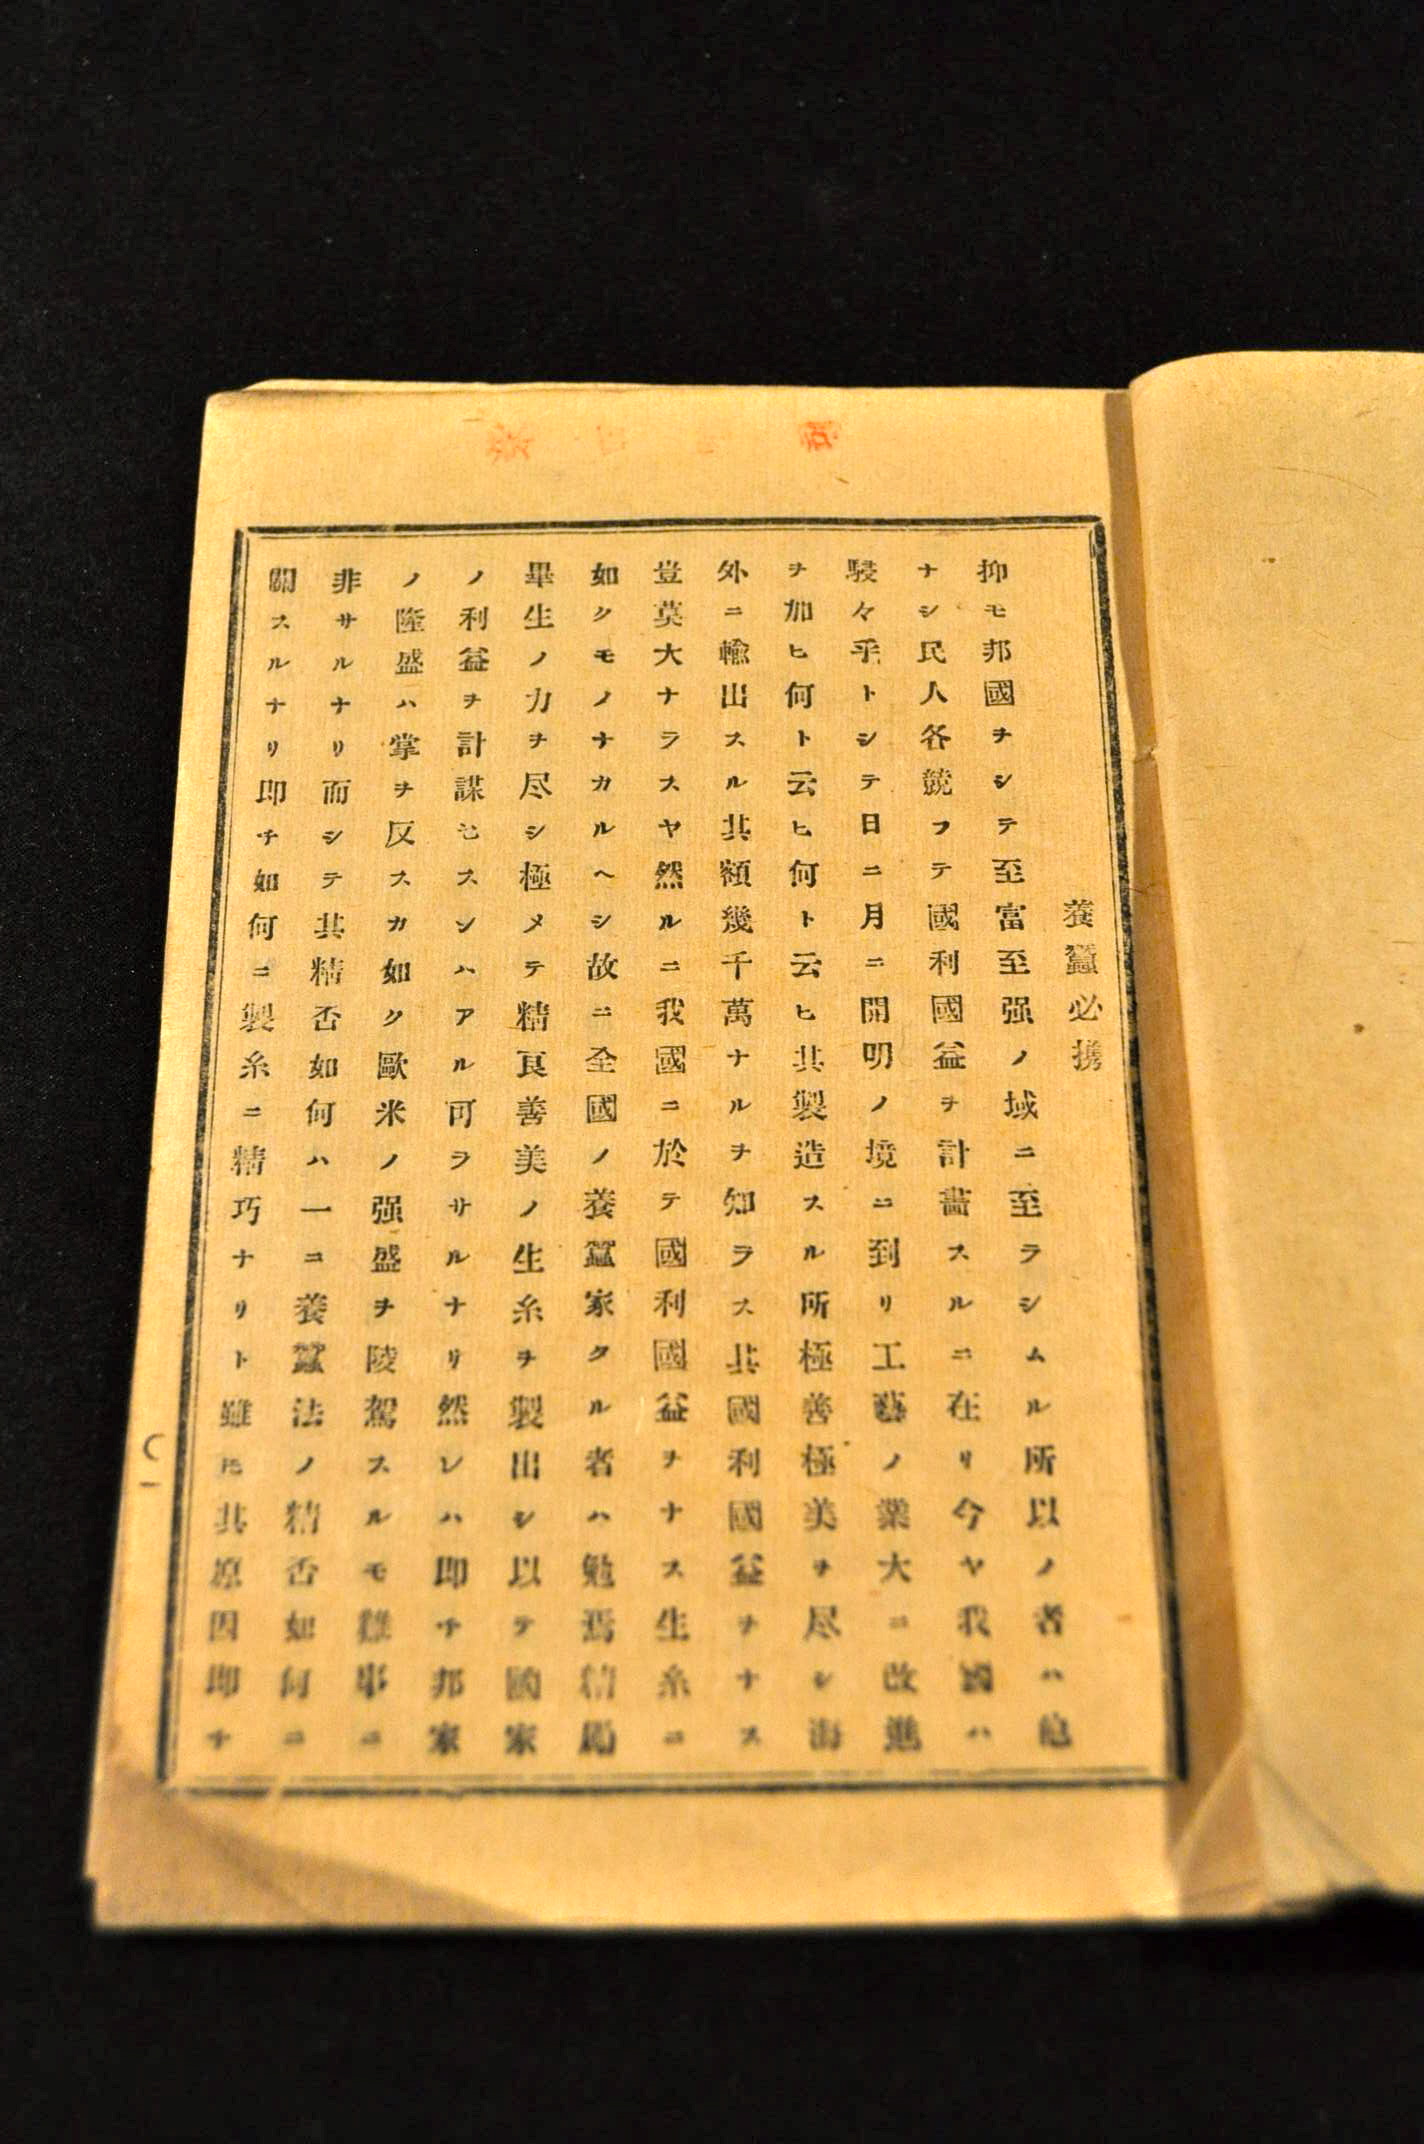 養蠶必携
抑モ邦國ヲシテ至富至强ノ域ニ至ラシムル所以ノ者ハ他
ナシ民人各競フテ國利國益ヲ計畵スルニ在リ今ヤ我國ハ
駸々乎トシテ日ニ月ニ開明ノ境ニ到リ工藝ノ業大ニ改進
ヲ加ヒ何ト云ヒ何ト云ヒ其製造スル所極善極美ヲ尽シ海
外ニ輸出スル其額幾千萬ナルヲ知ラス其國利國益ヲナス
豈莫大ナラスヤ然ルニ我國ニ於テ國利國益ヲナス生糸ニ
如クモノナカルヘシ故ニ全國ノ養蠶家タル者ハ勉焉精勵
畢生ノ力ヲ尽シ極メテ精良善美ノ生糸ヲ製出シ以テ國家
ノ利益ヲ計謀セスンハアル可ラサルナリ然レハ即チ邦家
ノ隆盛ハ掌ヲ反スカ如ク歐米ノ强盛ヲ陵駕スルモ難事ニ
非サルナリ而シテ其精否如何ハ一ニ養蠶法ノ精否如何ニ
關スルナリ即チ如何ニ製糸ニ精巧ナリト雖𪜈其原因即チ
一